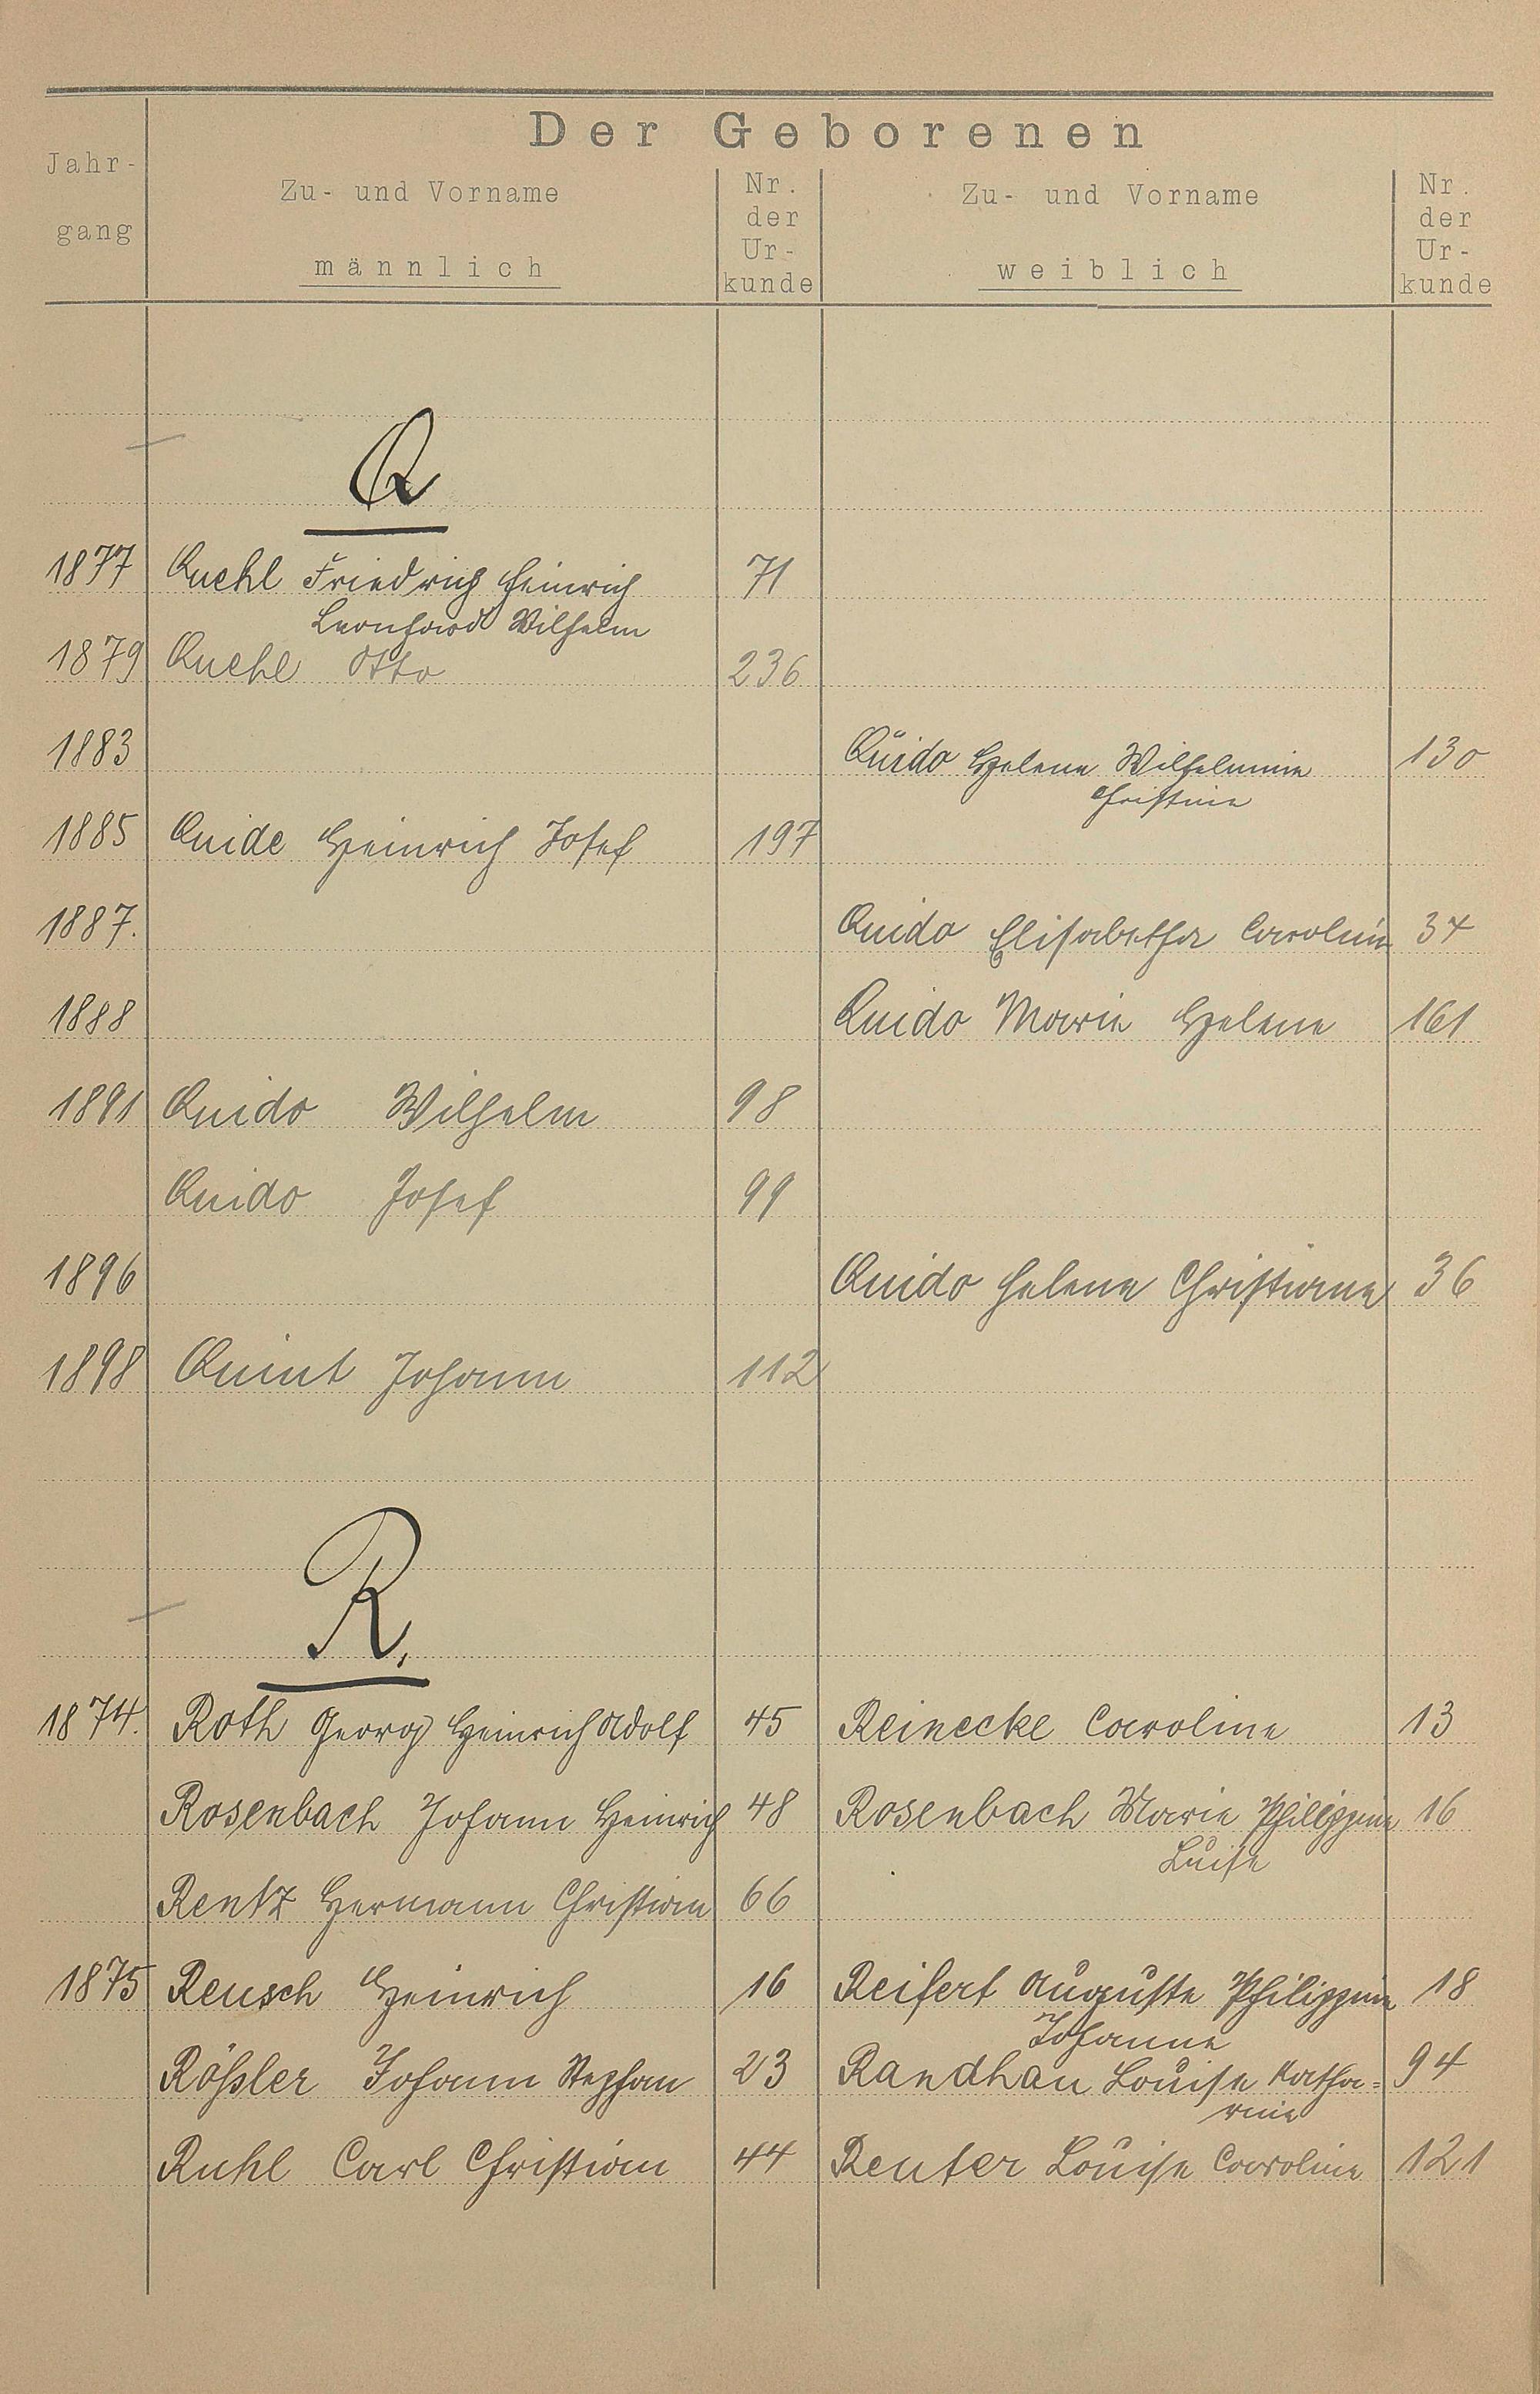 Der Geborenen
Jahr-
gang
Zu- und Vorname
männlich
Nr.
der
Ur-
kunde
Zu- und Vorname
weiblich
Nr.
der
Ur-
kunde
Q
1877 Quehl Friedrich Heinrich 71
Leonhard Wilhelm
1879 Quehl Otto 236
1883 Quido Helene Wilhelmine 130
Christine
1885 Quide Heinrich Josef 197
1887. Quido Elisabetha Caroline 34
1888 Quido Marie Helene 161
1891 Quido Wilhelm 98
Quido Josef 99
1896 Quido Helene Christiane 36
1898 Quint Johann 112
R.
1874. Roth Georg Heinrich Adolf 45 Reinecke Caroline 13
Rosenbach Johann Heinrich 48 Rosenbach Marie Philippine 16
Luise
Rentz Hermann Christian 66
1875 Reusch Heinrich 16 Reifert Auguste Philippine 18
Johanne
Rößler Johann Stephan 23 Randhau Louise Katha= 94
rine
Ruhl Carl Christian 44 Reuter Louise Caroline 121